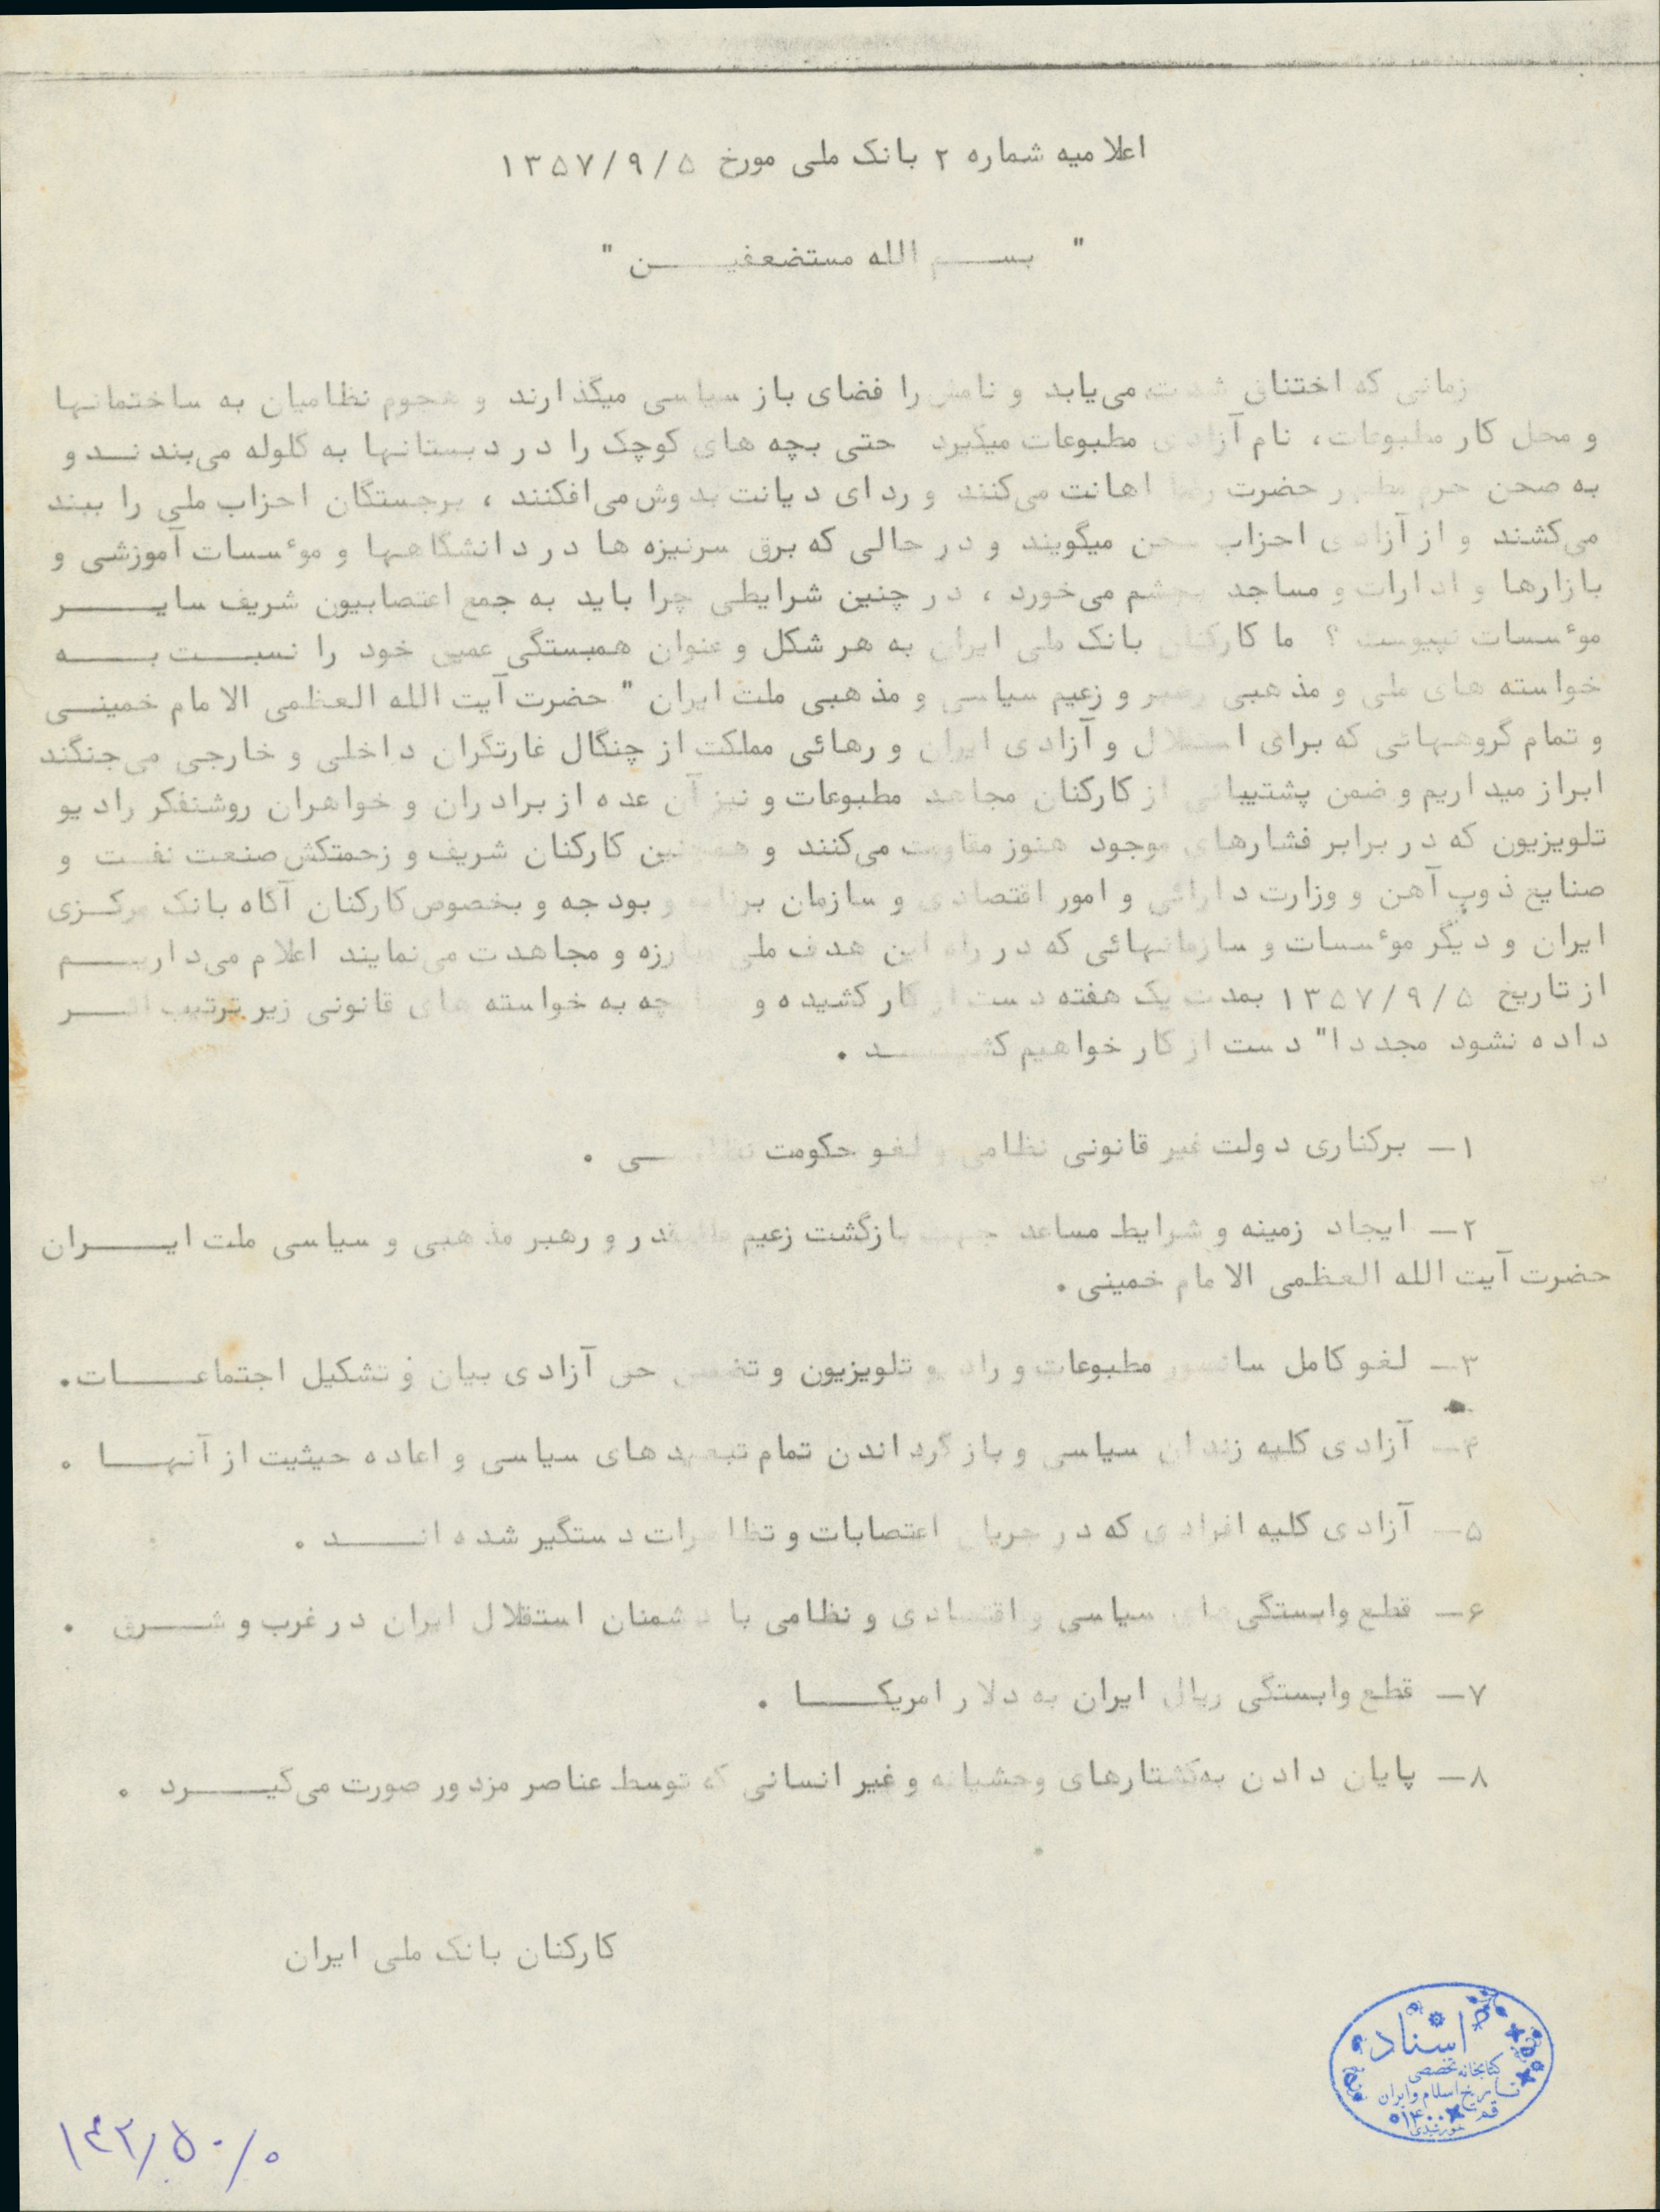 اعلامیه شماره ۲ بانک ملی مورخ ۱۳۵۷/۹/۵
" بسم الله مستضعفین "
زمانی که اختناق شدت می‌یابد و نامش را فضای باز سیاسی میگذارند و هجوم نظامیان به ساختمانها
و محل کار مطبوعات، نام آزادی مطبوعات میگیرد حتی بچه های کوچک را در دبستانها به گلوله می‌بندند و
به صحن حرم مطهر حضرت رضا اهانت می‌کنند و ردای دیانت بدوش می‌افکنند ، برجستگان احزاب ملی را ببند
می‌کشند و از آزادی احزاب سخن میگویند و در حالی که برق سرنیزه ها در دانشگاهها و موٴسسات آموزشی و
بازارها و ادارات و مساجد بچشم می‌خورد ، در چنین شرایطی چرا باید به جمع اعتصابیون شریف سایر
موٴسسات نپیوست ؟ ما کارکنان بانک ملی ایران به هر شکل و عنوان همبستگی عمیق خود را نسبت به
خواسته های ملی و مذهبی رهبر و زعیم سیاسی و مذهبی ملت ایران " حضرت آیت الله العظمی الامام خمینی
و تمام گروههائی که برای استقلال و آزادی ایران و رهائی مملکت از چنگال غارتگران داخلی و خارجی می‌جنگند
ابراز میداریم و ضمن پشتیبانی از کارکنان مجاهد مطبوعات و نیز آن عده از برادران و خواهران روشنفکر رادیو
تلویزیون که در برابر فشارهای موجود هنوز مقاومت می‌کنند و همچنین کارکنان شریف و زحمتکش صنعت نفت و
صنایع ذوب آهن و وزارت دارائی و امور اقتصادی و سازمان برنامه و بودجه و بخصوص کارکنان آگاه بانک مرکزی
ایران و دیگر موٴسسات و سازمانهائی که در راه این هدف ملی مبارزه و مجاهدت می‌نمایند اعلام می‌داریم
از تاریخ ۱۳۵۷/۹/۵ بمدت یک هفته دست از کار کشیده و چنانچه به خواسته های قانونی زیر ترتیب اثر
داده نشود مجددا" دست از کار خواهیم کشید .
۱- برکناری دولت غیر قانونی نظامی و لغو حکومت نظامی .
۲- ایجاد زمینه و شرایط مساعد جهت بازگشت زعیم عالیقدر و رهبر مذهبی و سیاسی ملت ایران
حضرت آیت الله العظمی الامام خمینی .
۳- لغو کامل سانسور مطبوعات و رادیو تلویزیون و حق آزادی بیان و تشکیل اجتماعات.
۴- آزادی کلیه زندان سیاسی و باز گرداندن تمام تبعیدهای سیاسی و اعاده حیثیت از آنها .
۵- آزادی کلیه افرادی که در جریان اعتصابات و تظاهرات دستگیر شده اند .
۶- قطع وابستگی‌های سیاسی و اقتصادی و نظامی با دشمنان استقلال ایران در غرب و شرق .
۷- قطع وابستگی ریال ایران به دلار امریکا .
۸- پایان دادن به‌کشتارهای وحشیانه و غیر انسانی که توسط عناصر مزدور صورت می‌گیرد .
کارکنان بانک ملی ایران
اسناد
کتابخانه تخصصی
تاریخ اسلام و ایران
قم
۱۴۲/۵۰/۰